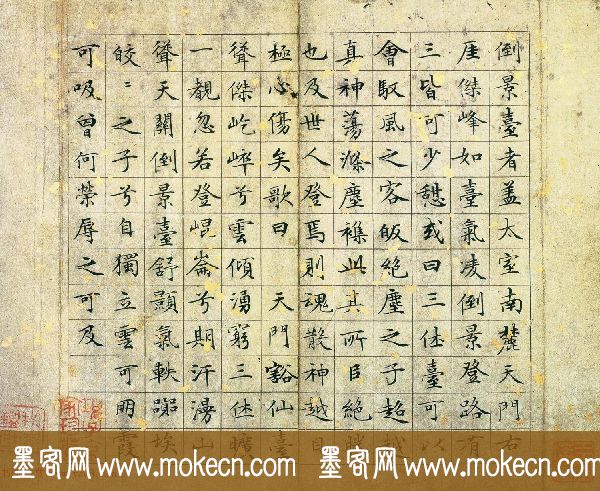 倒景臺者盖太室南麓天門右
厓傑峰如臺氣凌倒景登路有
三皆可少憇或曰三休臺可以
會馭風之客皈絕塵之子超越
真神蕩滌塵襟此其所㠯絕
也及世人登焉則魂散神越目
極心傷矣歌曰 天門豁仙臺
聳傑屹崒兮雲傾湧窮三休曠
一覯忽若登崐崙兮期汗漫
聳天關倒景臺舒顥氣軼囂埃
皎〻之子兮自獨立雲可朋霞
可吸曾何榮辱之可及
墨客网 www.mokecn.com 墨客网 www.mokecn.com